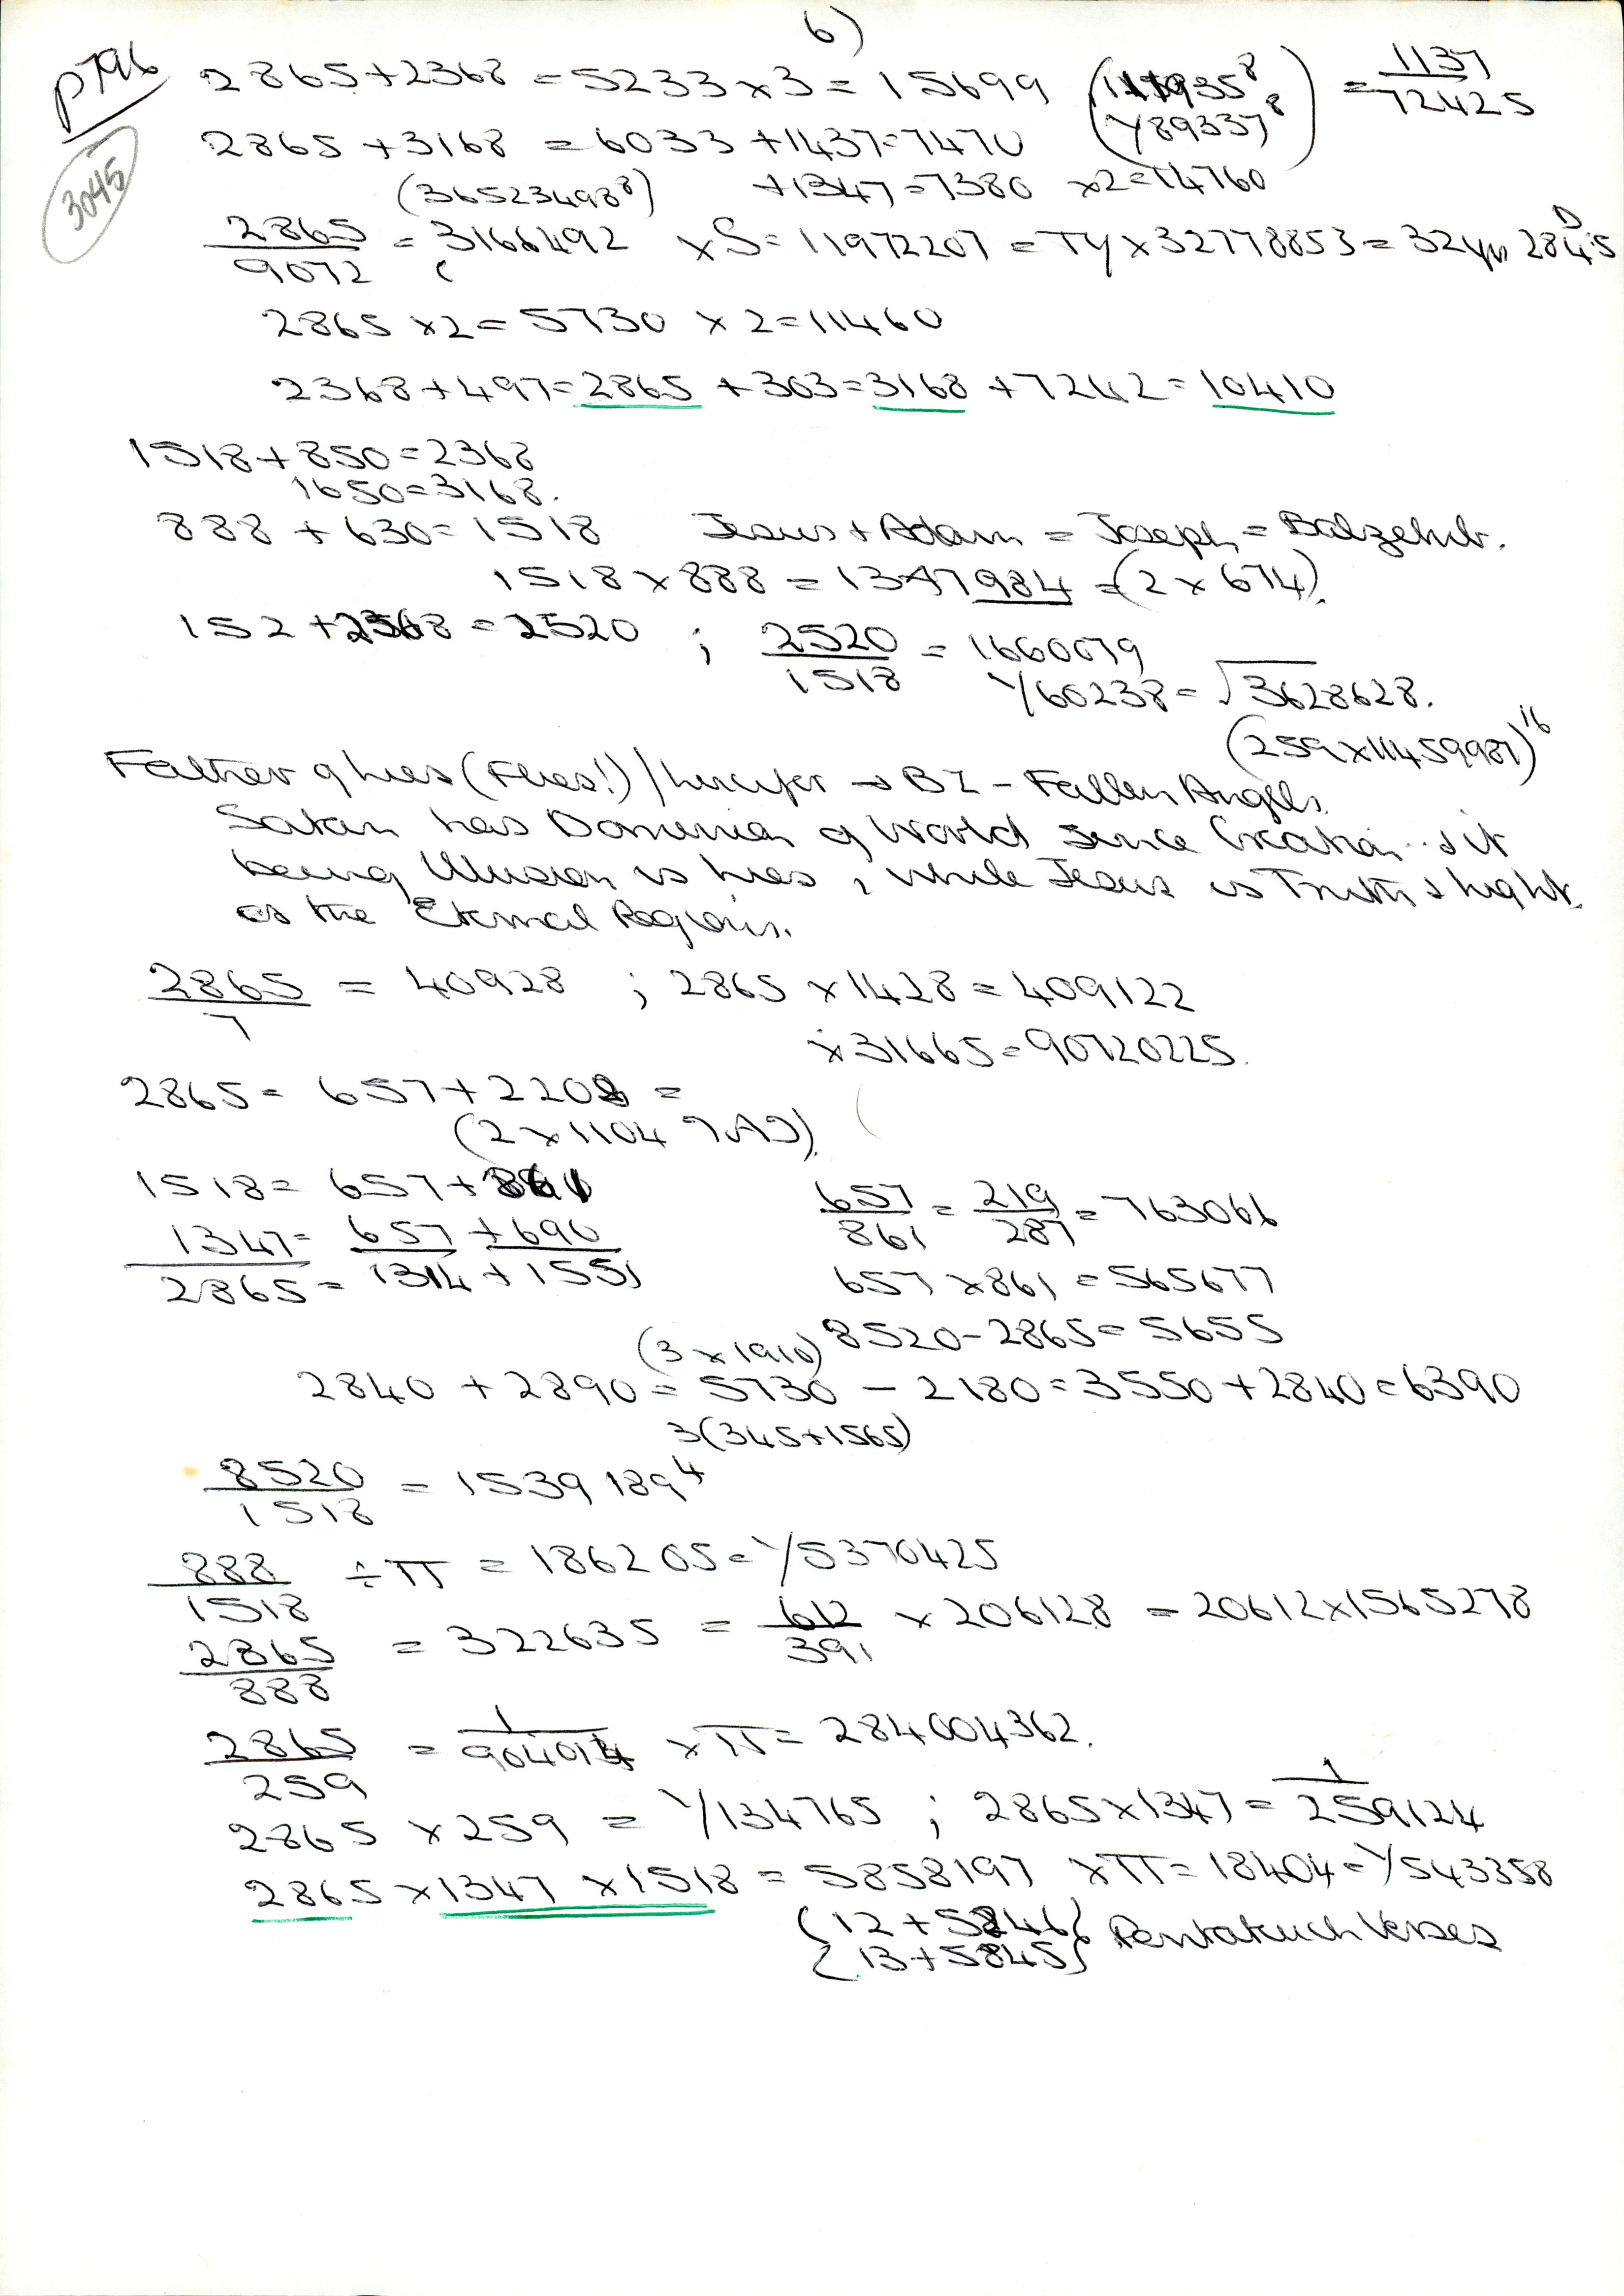 6)
p796
3045
2865+2368 = 5233 x 3 = 15699 ( 1119358⁸ = 1137/72425
2865 + 3168 = 6033 + 1437 = 7470 Y89337⁸ )
(365234988⁸) +1347 = 7380 x2 = 14760
2865/9072 = 3166492 x S = 11972207 = TY x 32778853 = 32yrs 284.5 D
2865 x 2 = 5730 x 2 = 11460
2368 + 497 = 2865 + 303 = 3168 + 7242 = 10410
1518 + 850 = 2368
1650 = 3168.
888 + 630 = 1518 Jesus + Adam = Joseph = Balzebub.
1518 x 888 = 1347984 = (2 x 674).
152 + 2368 = 2520 ; 2520/1518 = 1660079
Y60238 = √3628628.
(259 x 11459987)¹⁶
Father of lies (Flies!) / Lucifer → BZ – Fallen Angels.
Satan has Dominion of World since Creation .. & it
being Illusion is lies, while Jesus is Truth & Light.
as the Eternal Regions.
2865/7 = 40928 ; 2865 x 1428 = 409122
x 31665 = 90720225.
2865 = 657 + 2208 =
(2 x 1104
1518 = 657 + 861
657/861 = 219/287 = 763066
1347 = 657 + 690
2865 = 1314 + 1551
657 x 861 = 565677
8520 – 2865 = 5655
(3 x 1910)
2840 + 2890 = 5730 – 2180 = 3550 + 2840 = 6390
3(345 + 1565)
8520/1518 = 1539189⁴
888/1518 ÷ π = 186205 = Y5370425
2865/888 = 322635 = 612/391 x 206128 = 20612 x 1565278
2865/259 = 1/904014 x π = 284004362.
2865 x 259 = Y134765 ; 2865 x 1347 = 1/259124
2865 x 1347 x 1518 = 5858197 x π = 18404 = Y543358
{12 + 5846} Pentateuch Verses
{13 + 5845}